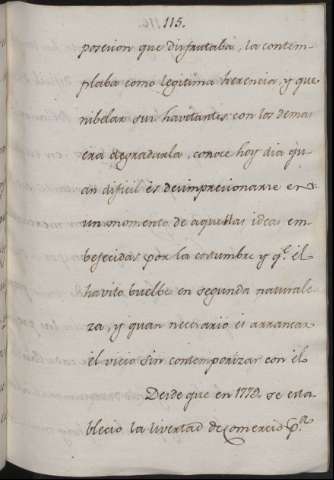 115.
posecion que disfrutaba, la contem-
plaba como legitima herencia, y que
nibelar sus havitantes con los demas
era degradarla, conoce hoy dia qu-
an dificil es desimprecionarse en
un momento de aquellas ideas em-
bejecidas por la costumbre y qe. el
havito buelbe en segunda naturale-
za, y quan necesario es arrancar
el vicio sin contemporizar con èl
Desde que en 1778, se esta-
blecio la livertad de Comercio pr.